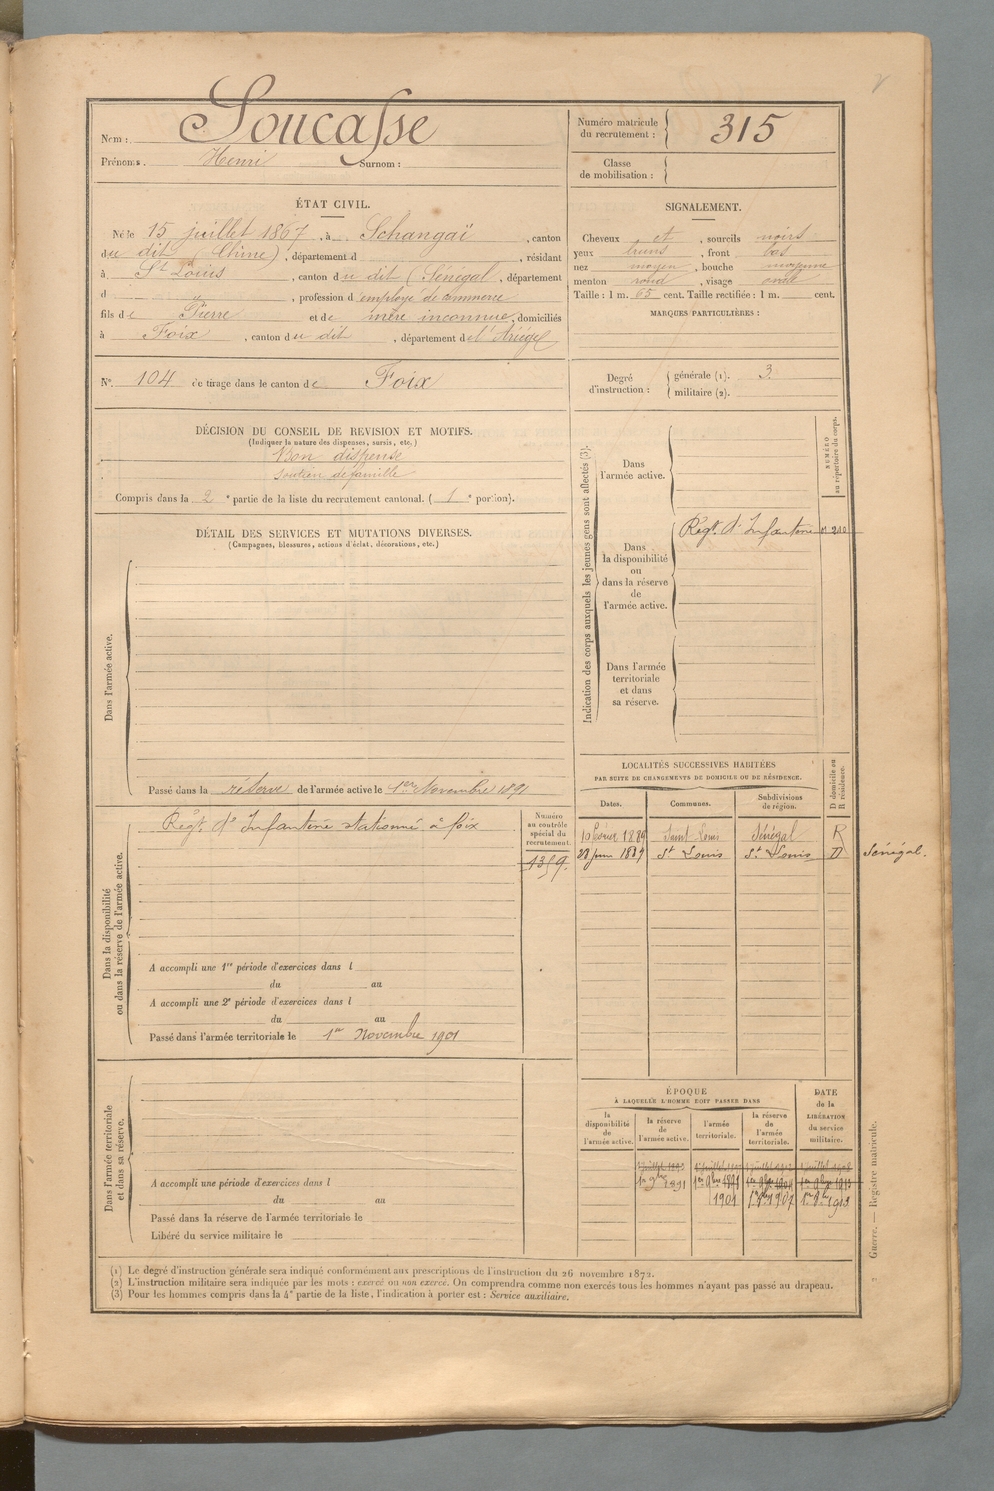 Nom : Soucasse
Prénoms : Henri Surnom :
Numéro matricule
du recrutement : 315
Classe
de mobilisation :
ÉTAT CIVIL.
Né le 15 juillet 1867, à Schangaï, canton
du dit (Chine), département d , résidant
à St Louis, canton du dit (Sénégal, département
d , profession d'employé de commerce
fils de Pierre et de mère inconnue, domiciliés
à Foix, canton du dit, département de l'Ariège
N° 104 de tirage dans le canton de Foix
SIGNALEMENT.
Cheveux et , sourcils noirs
yeux bruns , front bas
nez moyen , bouche moyenne
menton rond , visage ovale
Taille : 1 m. 65 cent. Taille rectifiée : 1 m. cent.
MARQUES PARTICULIÈRES :
Degré
d'instruction :
générale (1). 3
militaire (2).
DÉCISION DU CONSEIL DE REVISION ET MOTIFS.
(Indiquer la nature des dispenses, sursis, etc.)
Bon dispensé
soutien de famille
Compris dans la 2e partie de la liste du recrutement cantonal. ( 1e portion).
DÉTAIL DES SERVICES ET MUTATIONS DIVERSES.
(Campagnes, blessures, actions d'éclat, décorations, etc.)
Dans l'armée active.
Passé dans la réserve de l'armée active le 1er Novembre 1891
Indication des corps auxquels les jeunes gens sont affectés (3).
NUMÉRO
au répertoire du corps.
Dans
l'armée active.
Dans
la disponibilité
ou
dans la réserve
de
l'armée active.
Régt. d'Infanterie
Dans l'armée
territoriale
et dans
sa réserve.
Dans la disponibilité
ou dans la réserve de l'armée active.
Régt. d'Infanterie stationné à foix
Numéro
au contrôle
spécial du
recrutement.
1359.
A accompli une 1re période d'exercices dans l
du au
A accompli une 2e période d'exercices dans l
du au
Passé dans l'armée territoriale le 1er Novembre 1901
LOCALITÉS SUCCESSIVES HABITÉES
PAR SUITE DE CHANGEMENTS DE DOMICILE OU DE RÉSIDENCE.
D domicile ou
R résidence.
Dates. Communes. Subdivisions
de région.
1889 Saint Louis Sénégal R
St Louis St Louis D Sénégal.
Dans l'armée territoriale
et dans sa réserve.
A accompli une période d'exercices dans l
du au
Passé dans la réserve de l'armée territoriale le
Libéré du service militaire le
ÉPOQUE
À LAQUELLE L'HOMME DOIT PASSER DANS
la
disponibilité
de
l'armée active.
la réserve
de
l'armée active.
l'armée
territoriale.
la réserve
de
l'armée
territoriale.
DATE
de la
LIBÉRATION
du service
militaire.
1er 9bre 1891
1901
(1) Le degré d'instruction générale sera indiqué conformément aux prescriptions de l'instruction du 26 novembre 1872.
(2) L'instruction militaire sera indiquée par les mots : exercé ou non exercé. On comprendra comme non exercés tous les hommes n'ayant pas passé au drapeau.
(3) Pour les hommes compris dans la 4e partie de la liste, l'indication à porter est : Service auxiliaire.
Guerre. — Registre matricule.